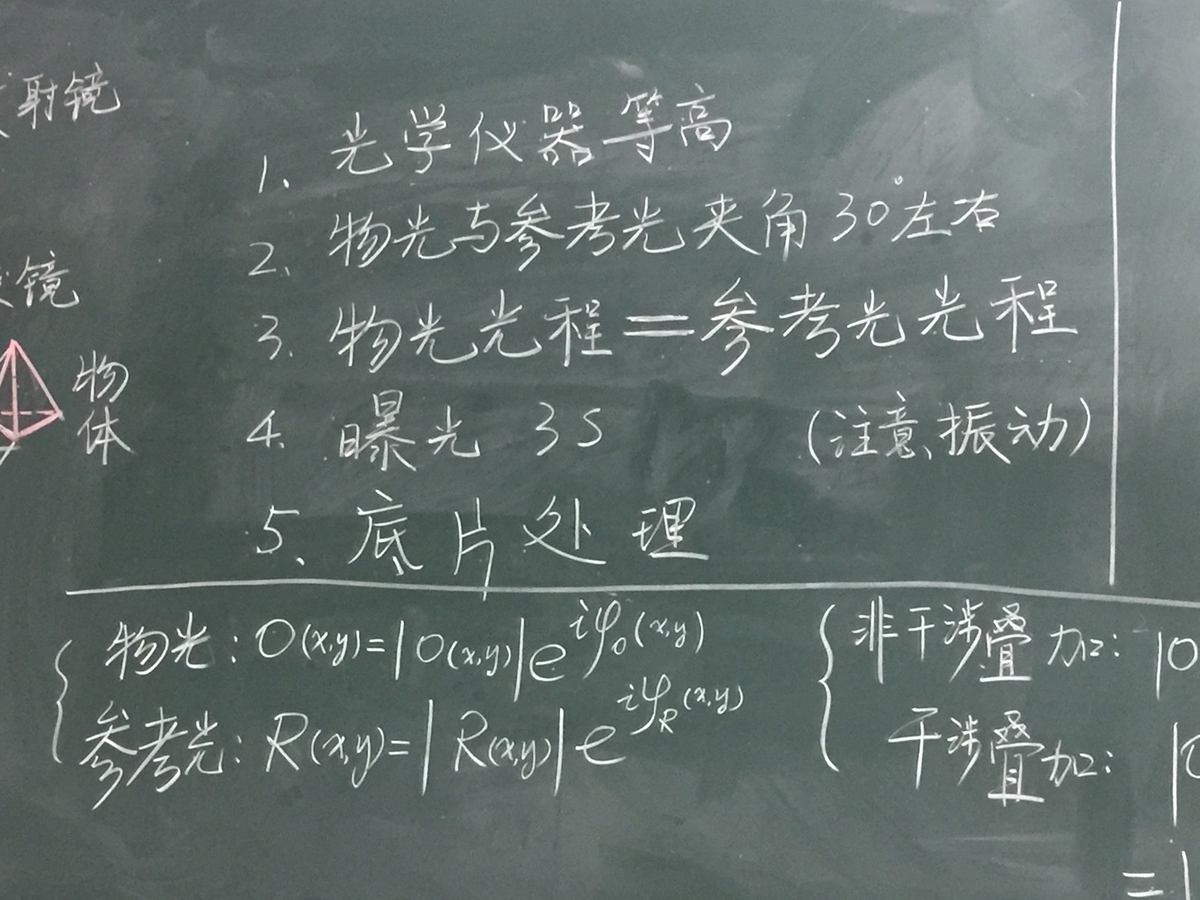 射镜
镜
物
体
1、光学仪器等高
2、物光与参考光夹角30°左右
3、物光光程=参考光光程
4、曝光 3S (注意、振动)
5、底片处理
物光:O(x,y)=|O(x,y)|e^{iφ_O(x,y)}
参考光:R(x,y)=|R(x,y)|e^{iφ_R(x,y)}
非干涉叠加:|O
干涉叠加:|O
=|